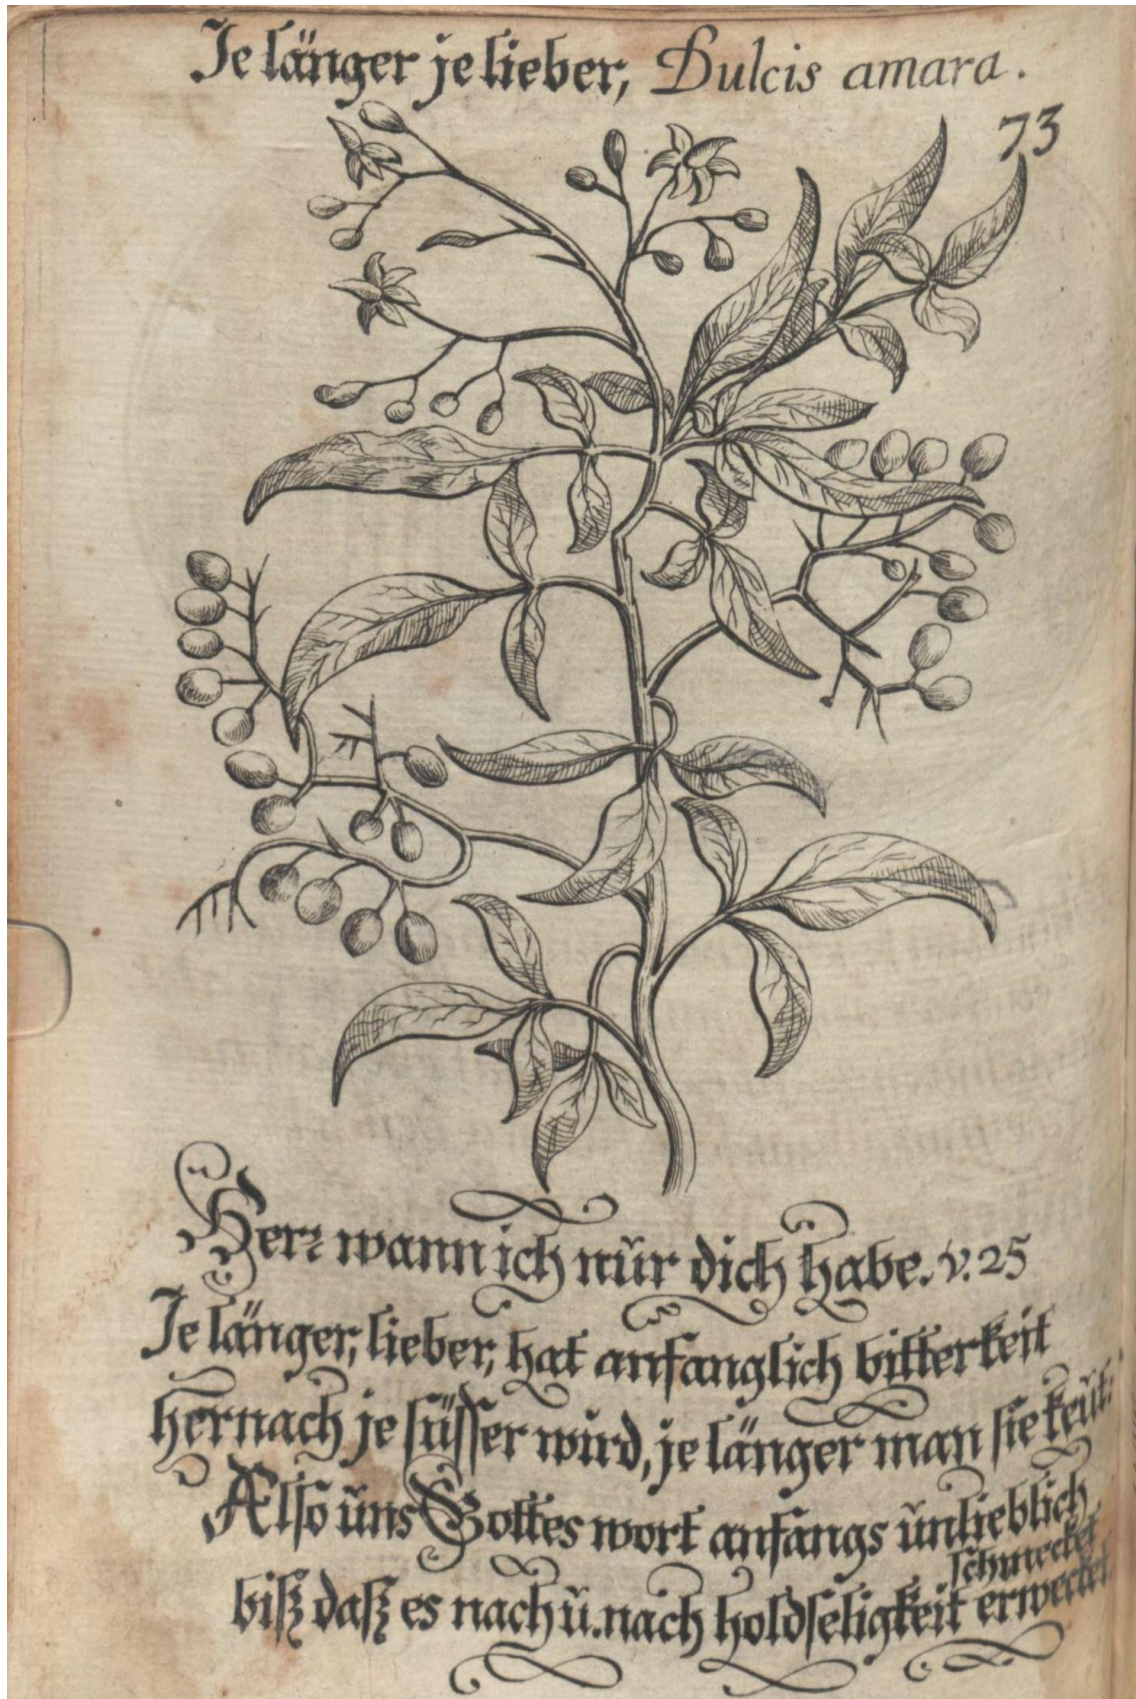 Je länger je lieber, Dulcis amara.
73
Herr wann ich nŭr dich habe. v. 25
Je länger, lieber, hat anfanglich bitterkeit
hernach je süsser wird, je länger man sie keüt:
Also ŭns Gottes wort anfangs ŭnlieblich
schmecket
bisz dasz es nach ŭ. nach holdseligkeit erwecket